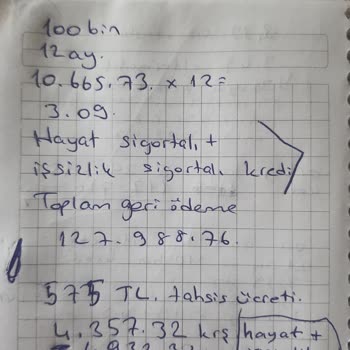 100 bin
12 ay.
10.665.73. x 12 =
3.09.
Hayat sigortalı +
işsizlik sigortalı kredi
Toplam geri ödeme
127.988.76.
575 TL. tahsis ücreti.
4.357.32 krş hayat +
4.932.3